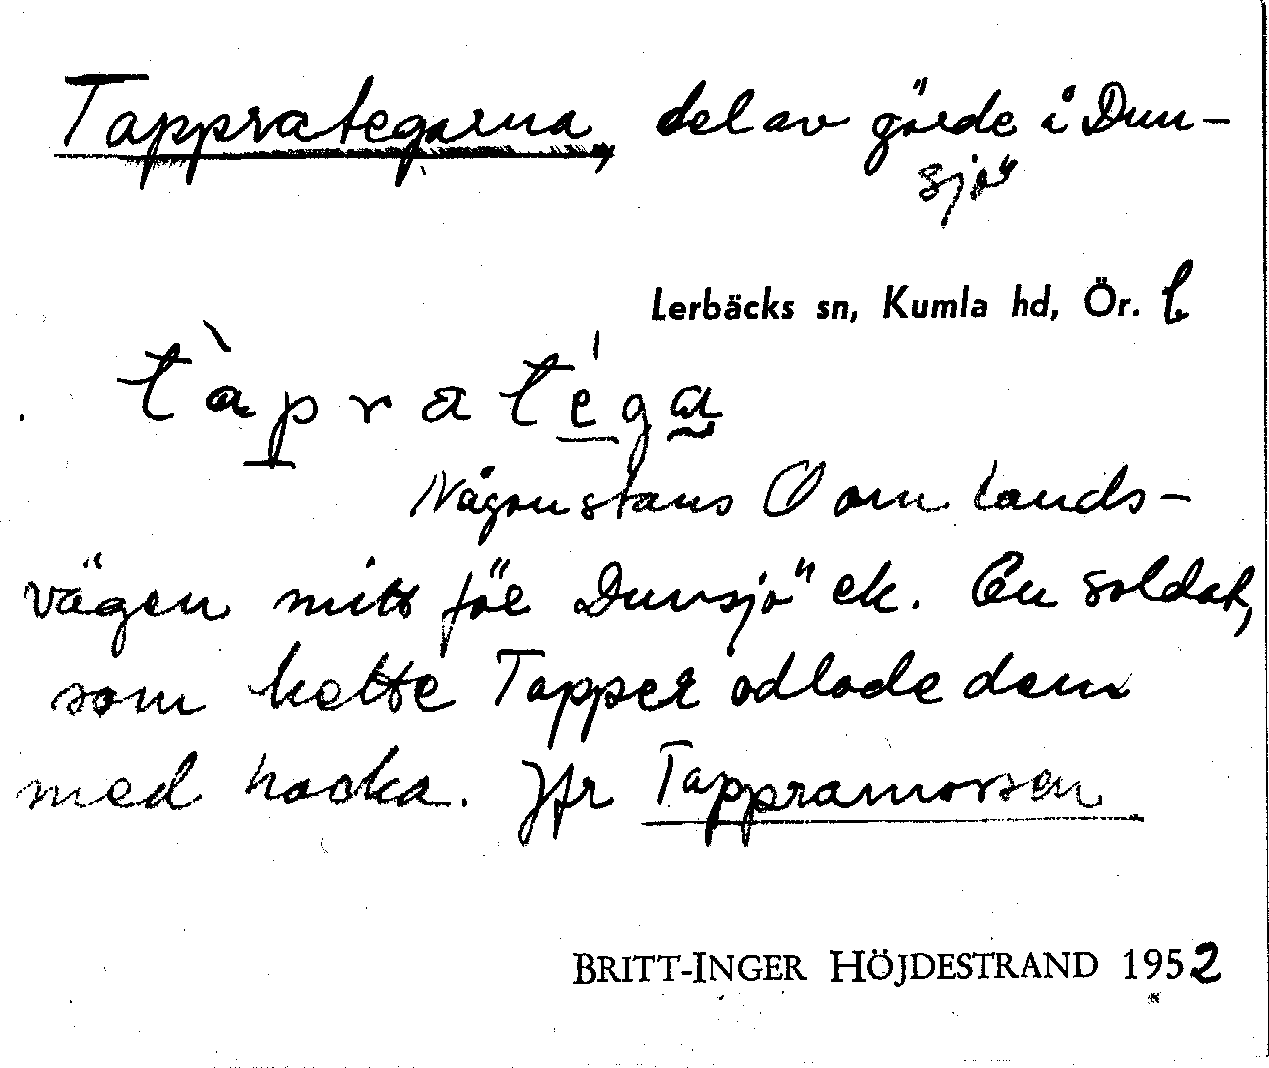 Tapprategarna, del av gärde i Dun-
sjö
Lerbäcks sn, Kumla hd, Ör. l.
tàpratéga
Någonstans O om lands-
vägen mitt för Dunsjö ek. En soldat,
som hette Tapper odlade dem
med hacka. Jfr Tappramossen
BRITT-INGER HÖJDESTRAND 1952